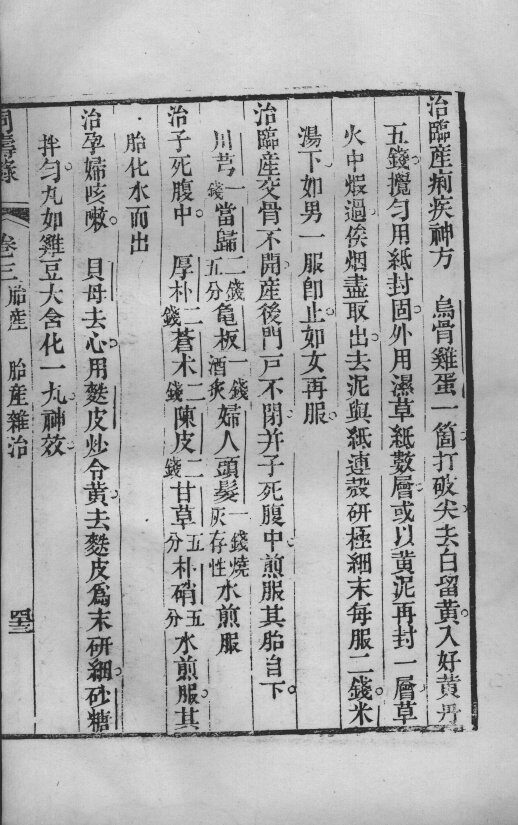 治臨產痢疾神方　烏骨雞蛋一箇打破尖去白留黃入好黃丹
五錢攪勻用紙封固外用濕草紙數層或以黃泥再封一層草
火中煆過俟烟盡取出去泥與紙連殼研極細末每服二錢米
湯下如男一服卽止如女再服
治臨產交骨不開產後門戸不閉并子死腹中煎服其胎自下
川芎一錢當歸二錢五分龜板一錢酒炙婦人頭髮一錢燒灰存性水煎服
治子死腹中　厚朴二錢蒼术二錢陳皮二錢甘草五分朴硝五分水煎服其
胎化水而出
治孕婦咳嗽　貝母去心用麩皮炒令黃去麩皮爲末研細砂糖
拌勻丸如雞豆大含化一丸神效
同壽錄　卷三　胎產　胎產雜治